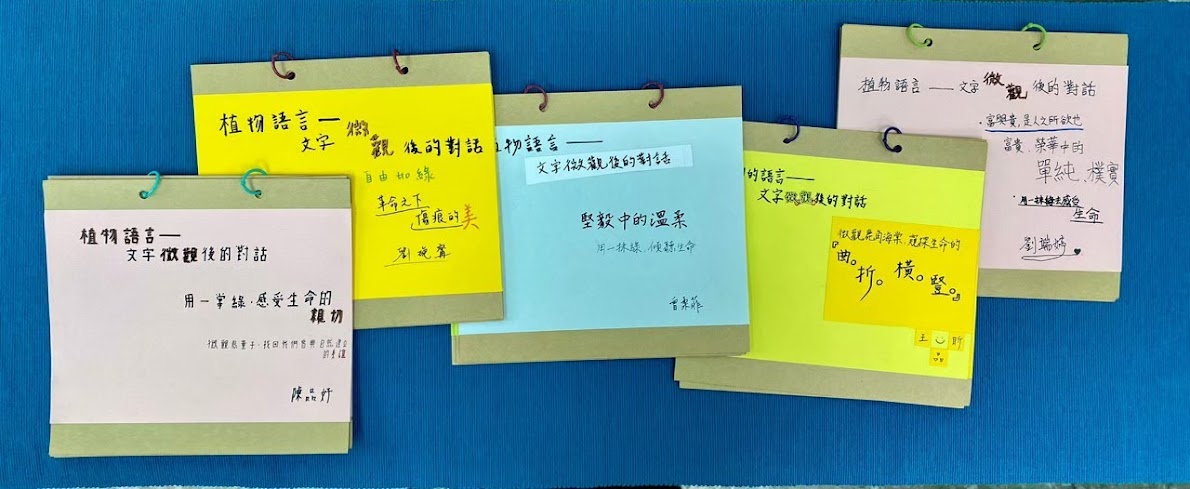 植物語言——
文字微觀後的對話
用一掌綠,感受生命的
親切
微觀
的
陳品妤
植物語言—
文字微觀後的對話
自由如綠
革命之下
傷痕的美
劉
物語言——
文字微觀後的對話
堅毅中的溫柔
用一抹綠,傾聽生命
曾
的語言——
文字微觀後的對話
微觀是角海棠,花葉生命的
『曲。
折。橫。豎。』
王
昕
品
植物語言——文字微觀後的對話
・富與貴,是人之所欲也
富貴、榮華中的
單純、樸實
・用一抹綠去感受
生命
劉瑞婷